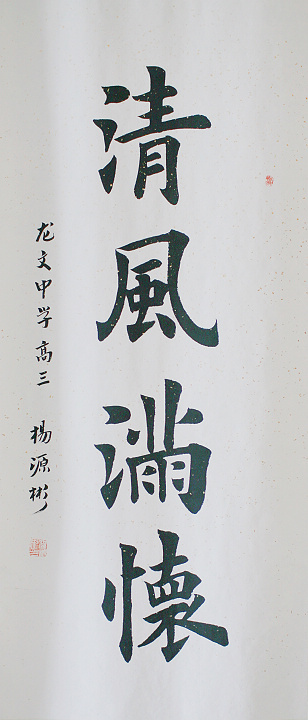 清風滿懷
龙文中学高三 楊源彬